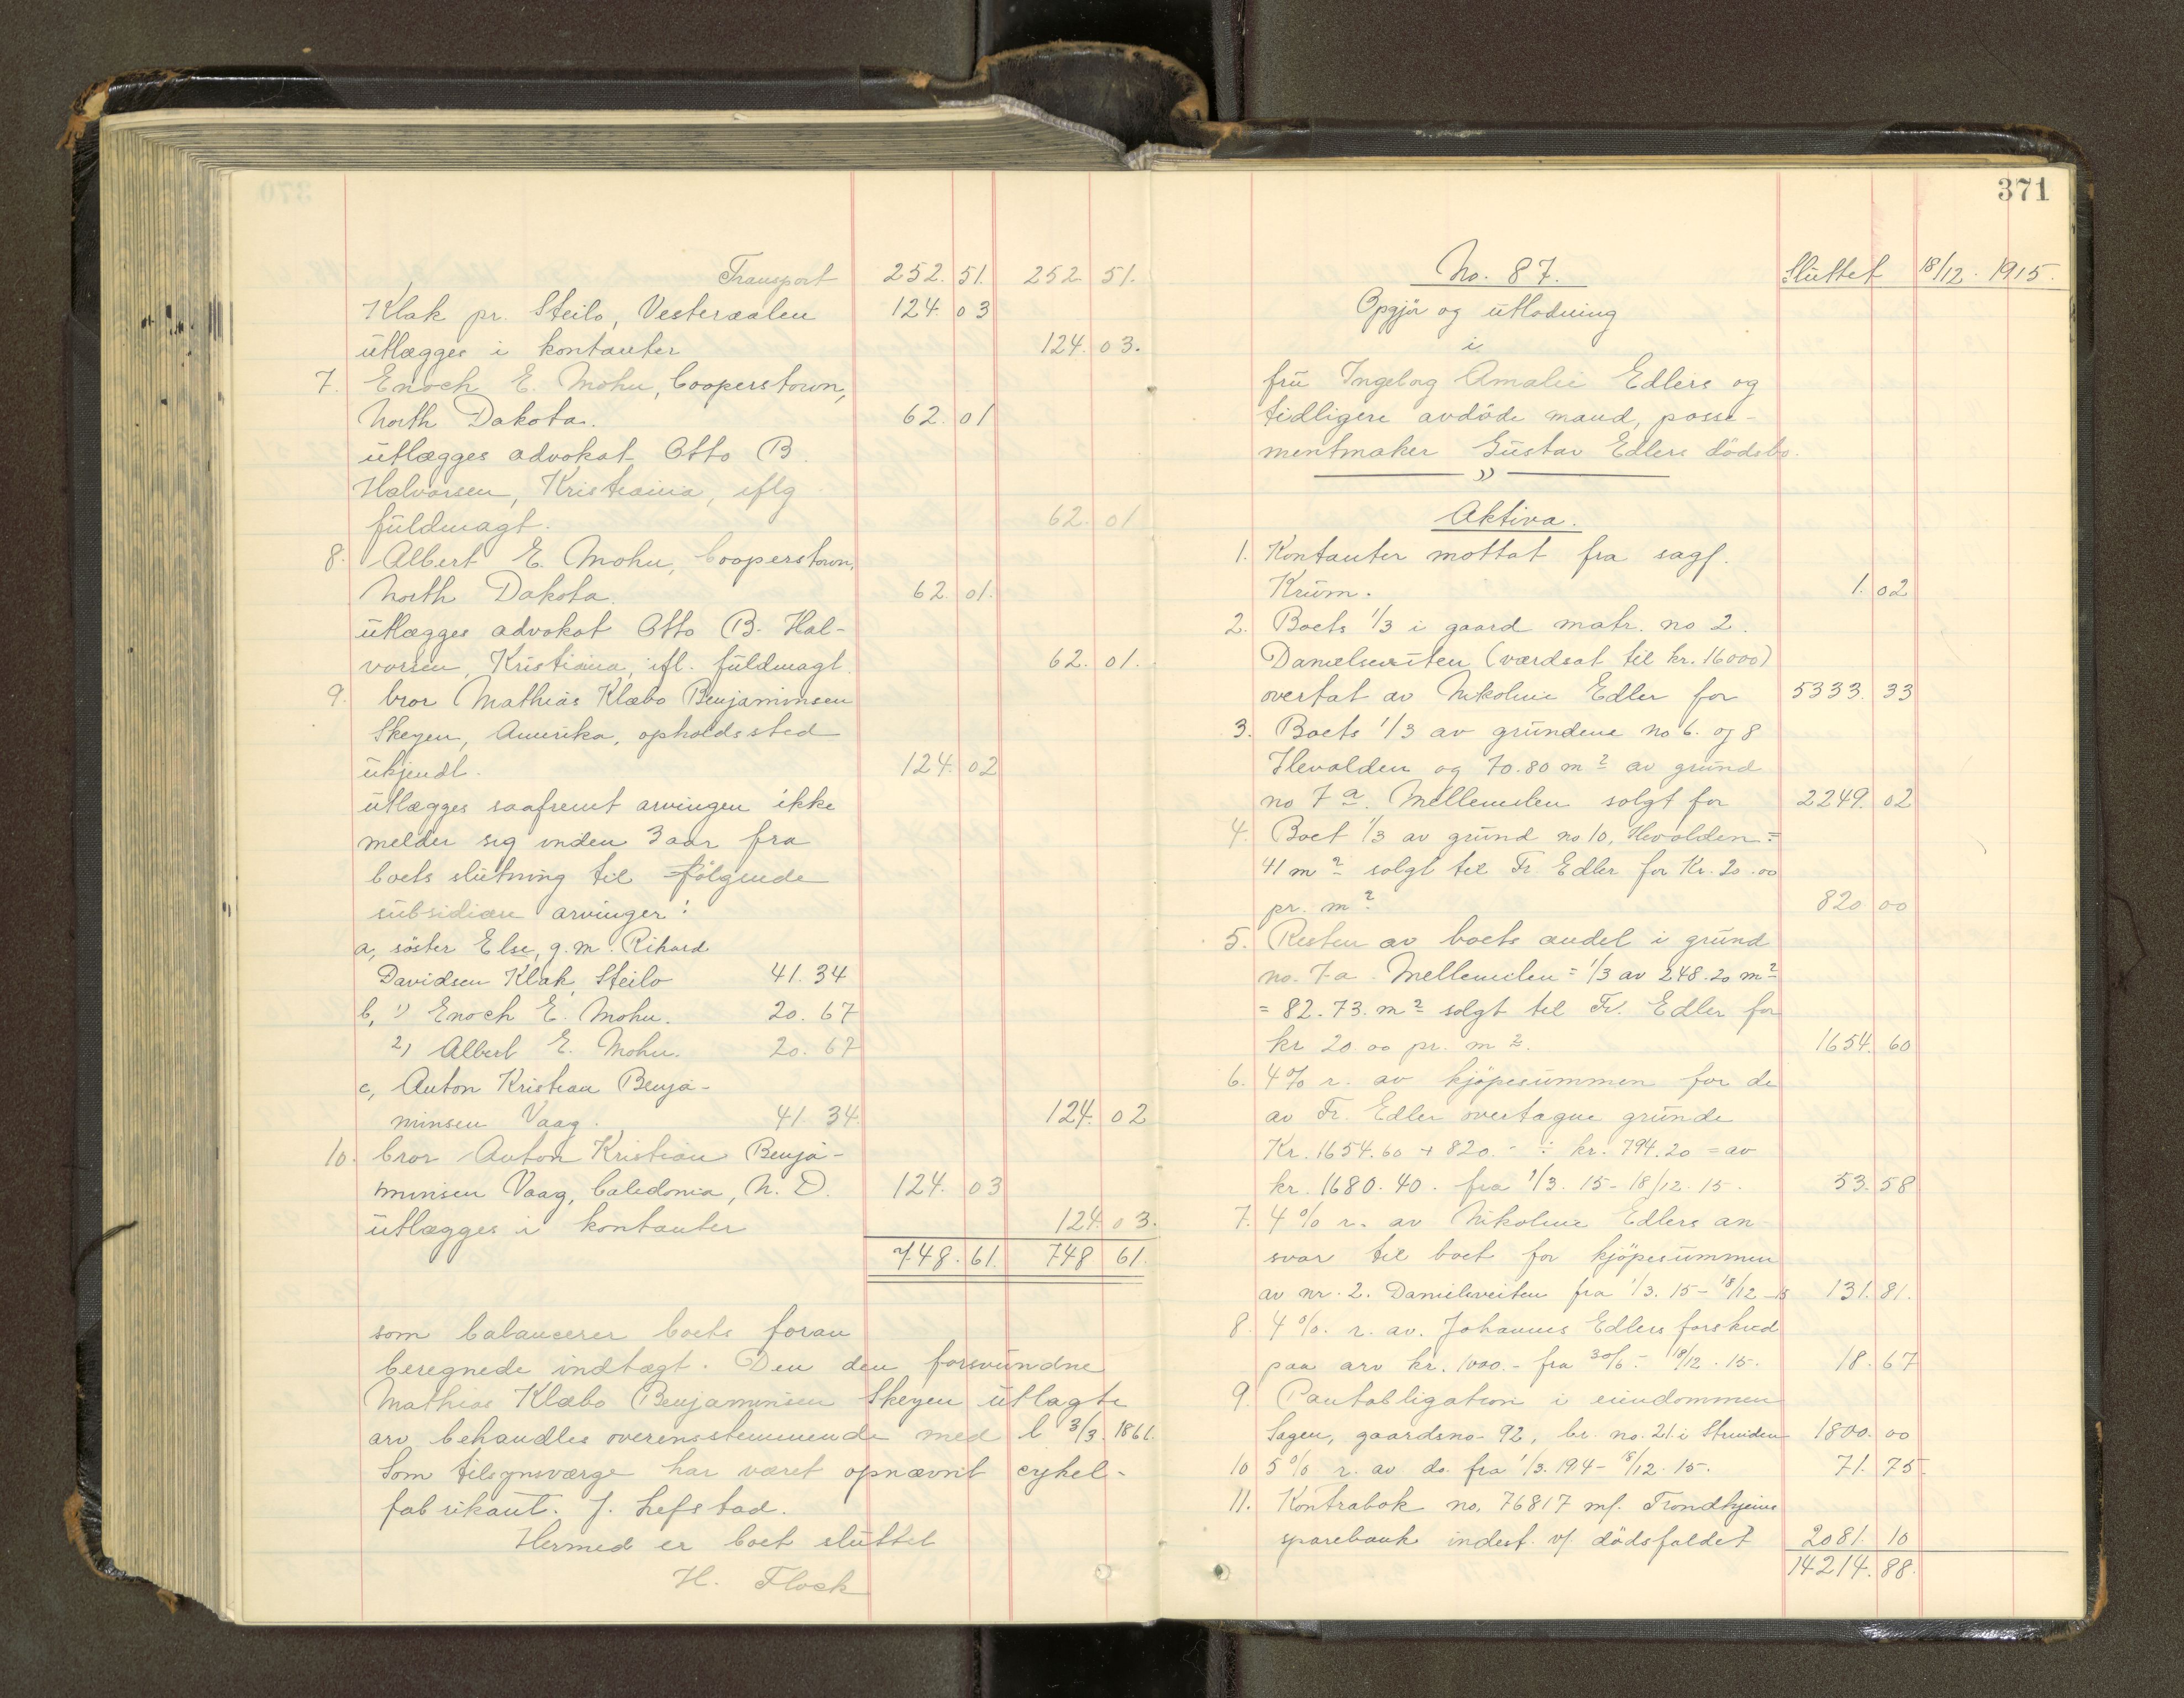 Transport 252. 51. 252. 51.
Klak pr. Steilo, Vesteraalen 124. 03
utlægges i kontanter 124. 03.
7. Enoch E. Mohn, Cooperstown,
North Dakota. 62. 01
utlægges advokat Otto B.
Halvorsen, Kristiania, iflg
fuldmagt. 62. 01
8. Albert E. Mohn, Cooperstown,
North Dakota. 62. 01.
utlægges advokat Otto B. Hal-
vorsen, Kristiania, ifl. fuldmagt. 62. 01.
9. bror Mathias Klæbo Benjaminsen
Skeyen, Amerika, opholdssted
ukjendt. 124. 02
utlægges saafremt arvingen ikke
melder sig inden 3 aar fra
boets slutning til følgende
subsidiære arvinger:
a, søster Else, g.m. Rikard
Davidsen Klak, Steilo 41. 34
b, 1) Enoch E. Mohn. 20. 67
2) Albert E. Mohn. 20. 67
c, Anton Kristian Benja-
minsen Vaag. 41. 34. 124. 02
10. bror Anton Kristian Benja-
minsen Vaag, Caledonia, N. D. 124. 03
utlægges i kontanter 124. 03.
748. 61. 748 61.
som balancerer boets foran
beregnede indtægt. Den den forsvundne
Mathias Klæbo Benjaminsen Skeyen utlagte
arv behandles overensstemmende med l 3/3. 1861.
Som tilsynsværge har været opnævnt cykel-
fabrikant. J. Lefstad.
Hermed er boet sluttet
H. Flock
371
No. 87. Sluttet 18/12. 1915.
Opgjør og utlodning
i
fru Ingeborg Amalie Edlers og
tidligere avdøde mand, posse-
mentmaker Gustav Edlers dødsbo.
Aktiva.
1. Kontanter mottat fra sagf.
Krum. 1. 02
2. Boets 1/3 i gaard matr. no 2.
Danielsveiten (værdsat til kr. 16000)
overtat av Nikoline Edler for 5333. 33
3. Boets 1/3 av grundene no 6. og 8
Ilevolden og 70.80 m2 av grund
no 7a. Mellemilen solgt for 2249. 02
4. Boet 1/3 av grund no 10, Ilevolden =
41 m2 solgt til Fr. Edler for Kr. 20.00
pr. m2 820 00
5. Resten av boets andel i grund
no. 7a. Mellemilen = 1/3 av 248.20 m2
= 82.73. m2 solgt til Fr. Edler for
kr 20 00 pr. m2. 1654. 60
6. 4% r. av kjøpesummen for de
av Fr. Edler overtagne grunde
Kr. 1654.60 + 820.- ÷ kr. 794.20 = av
kr. 1680.40. fra 1/3. 15 - 18/12. 15. 53. 58
7. 4% r. av Nikoline Edlers an-
svar til boet for kjøpesummen
av nr. 2. Danielsveiten fra 1/3. 15 - 18/12 - 15 131. 81.
8. 4%. r. av. Johannes Edlers forskud
paa arv kr. 1000.- fra 30/6 - 18/12. 15. 18. 67
9. Pantobligation i eiendommen
Sagen, gaardsno. 92, br. no. 21 i Strinden 1800. 00
10 5% r. av do. fra 1/3. 1914 - 18/12. 15. 71. 75.
11. Kontrabok no. 76817 mf. Trondhjems
sparebank indest. v/ dødsfaldet 2081. 10
14214. 88.